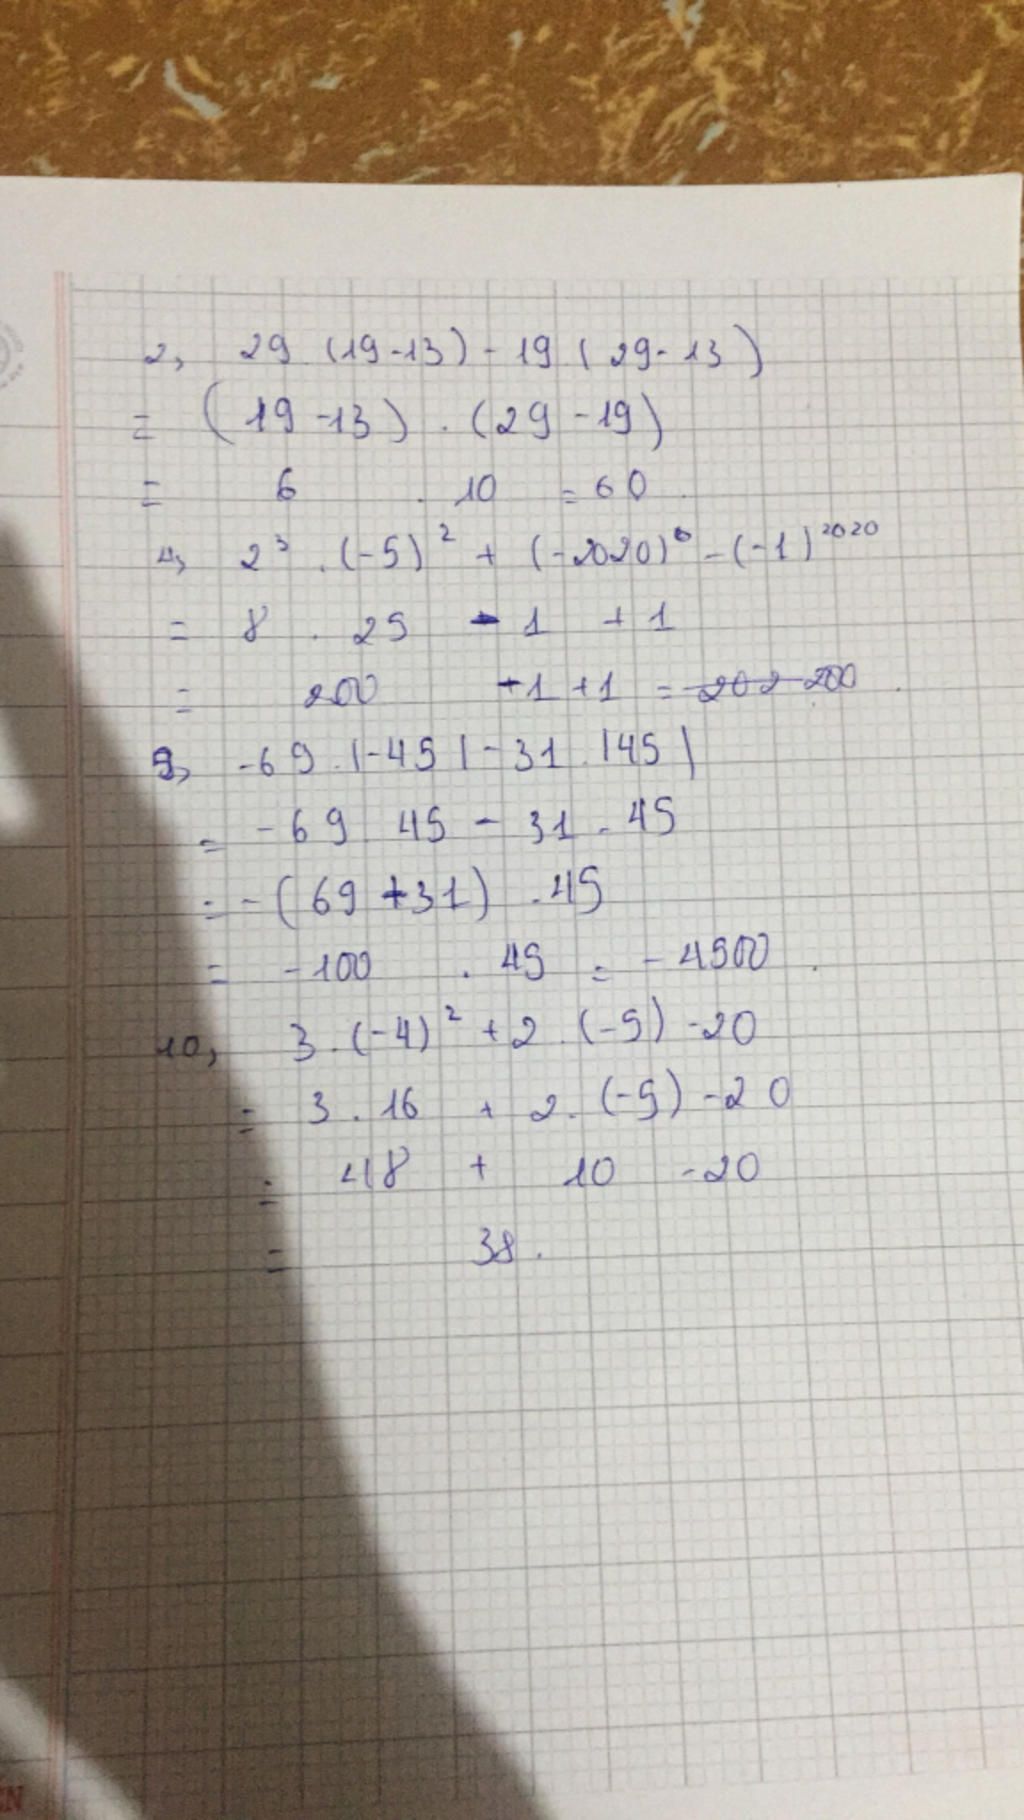 2, 29 (19-13) - 19 (29-13)
= (19-13) . (29-19)
= 6 . 10 = 60.
4, 2³ . (-5)² + (-2020)⁰ - (-1)²⁰²⁰
= 8 . 25 - 1 + 1
= 200 +1 +1 = 202 200.
9, -69.|-45|-31.|45|
= -69 45 - 31.45
= -(69+31) .45
= -100 . 45 = -4500.
10, 3.(-4)² + 2.(-5) -20
= 3.16 + 2.(-5) -20
= 48 + 10 -20
= 38.